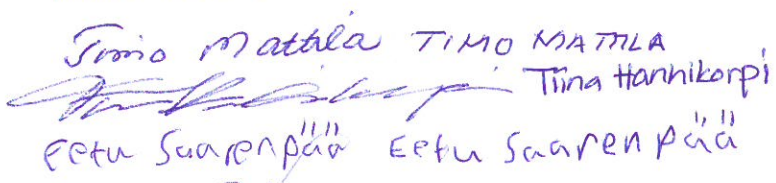 Timo Mattila TIMO MATTILA
Tiina Hannikorpi
Eetu Saarenpää Eetu Saarenpää